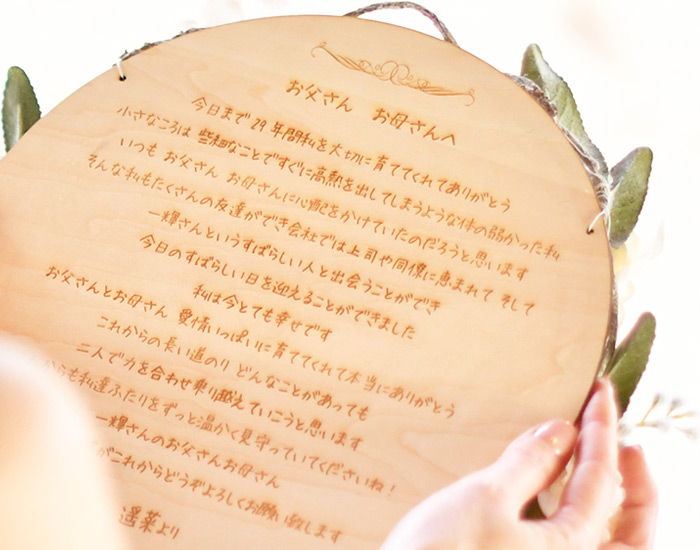 お父さん　お母さんへ
今日まで29年間私を大切に育ててくれてありがとう
小さなころは 些細なことですぐに高熱を出してしまうような体の弱かった私
いつも お父さん お母さんに心配をかけていたのだろうと思います
そんな私もたくさんの友達ができ会社では上司や同僚に恵まれて そして
一輝さんというすばらしい人と出会うことができ
今日のすばらしい日を迎えることができました
私は今とても幸せです
お父さんとお母さん 愛情いっぱいに育ててくれて本当にありがとう
これからの長い道のり どんなことがあっても
二人で力を合わせ乗り越えていこうと思います
からも私達ふたりをずっと温かく見守っていてくださいね！
一輝さんのお父さんお母さん
がこれからどうぞよろしくお願い致します
遥菜より